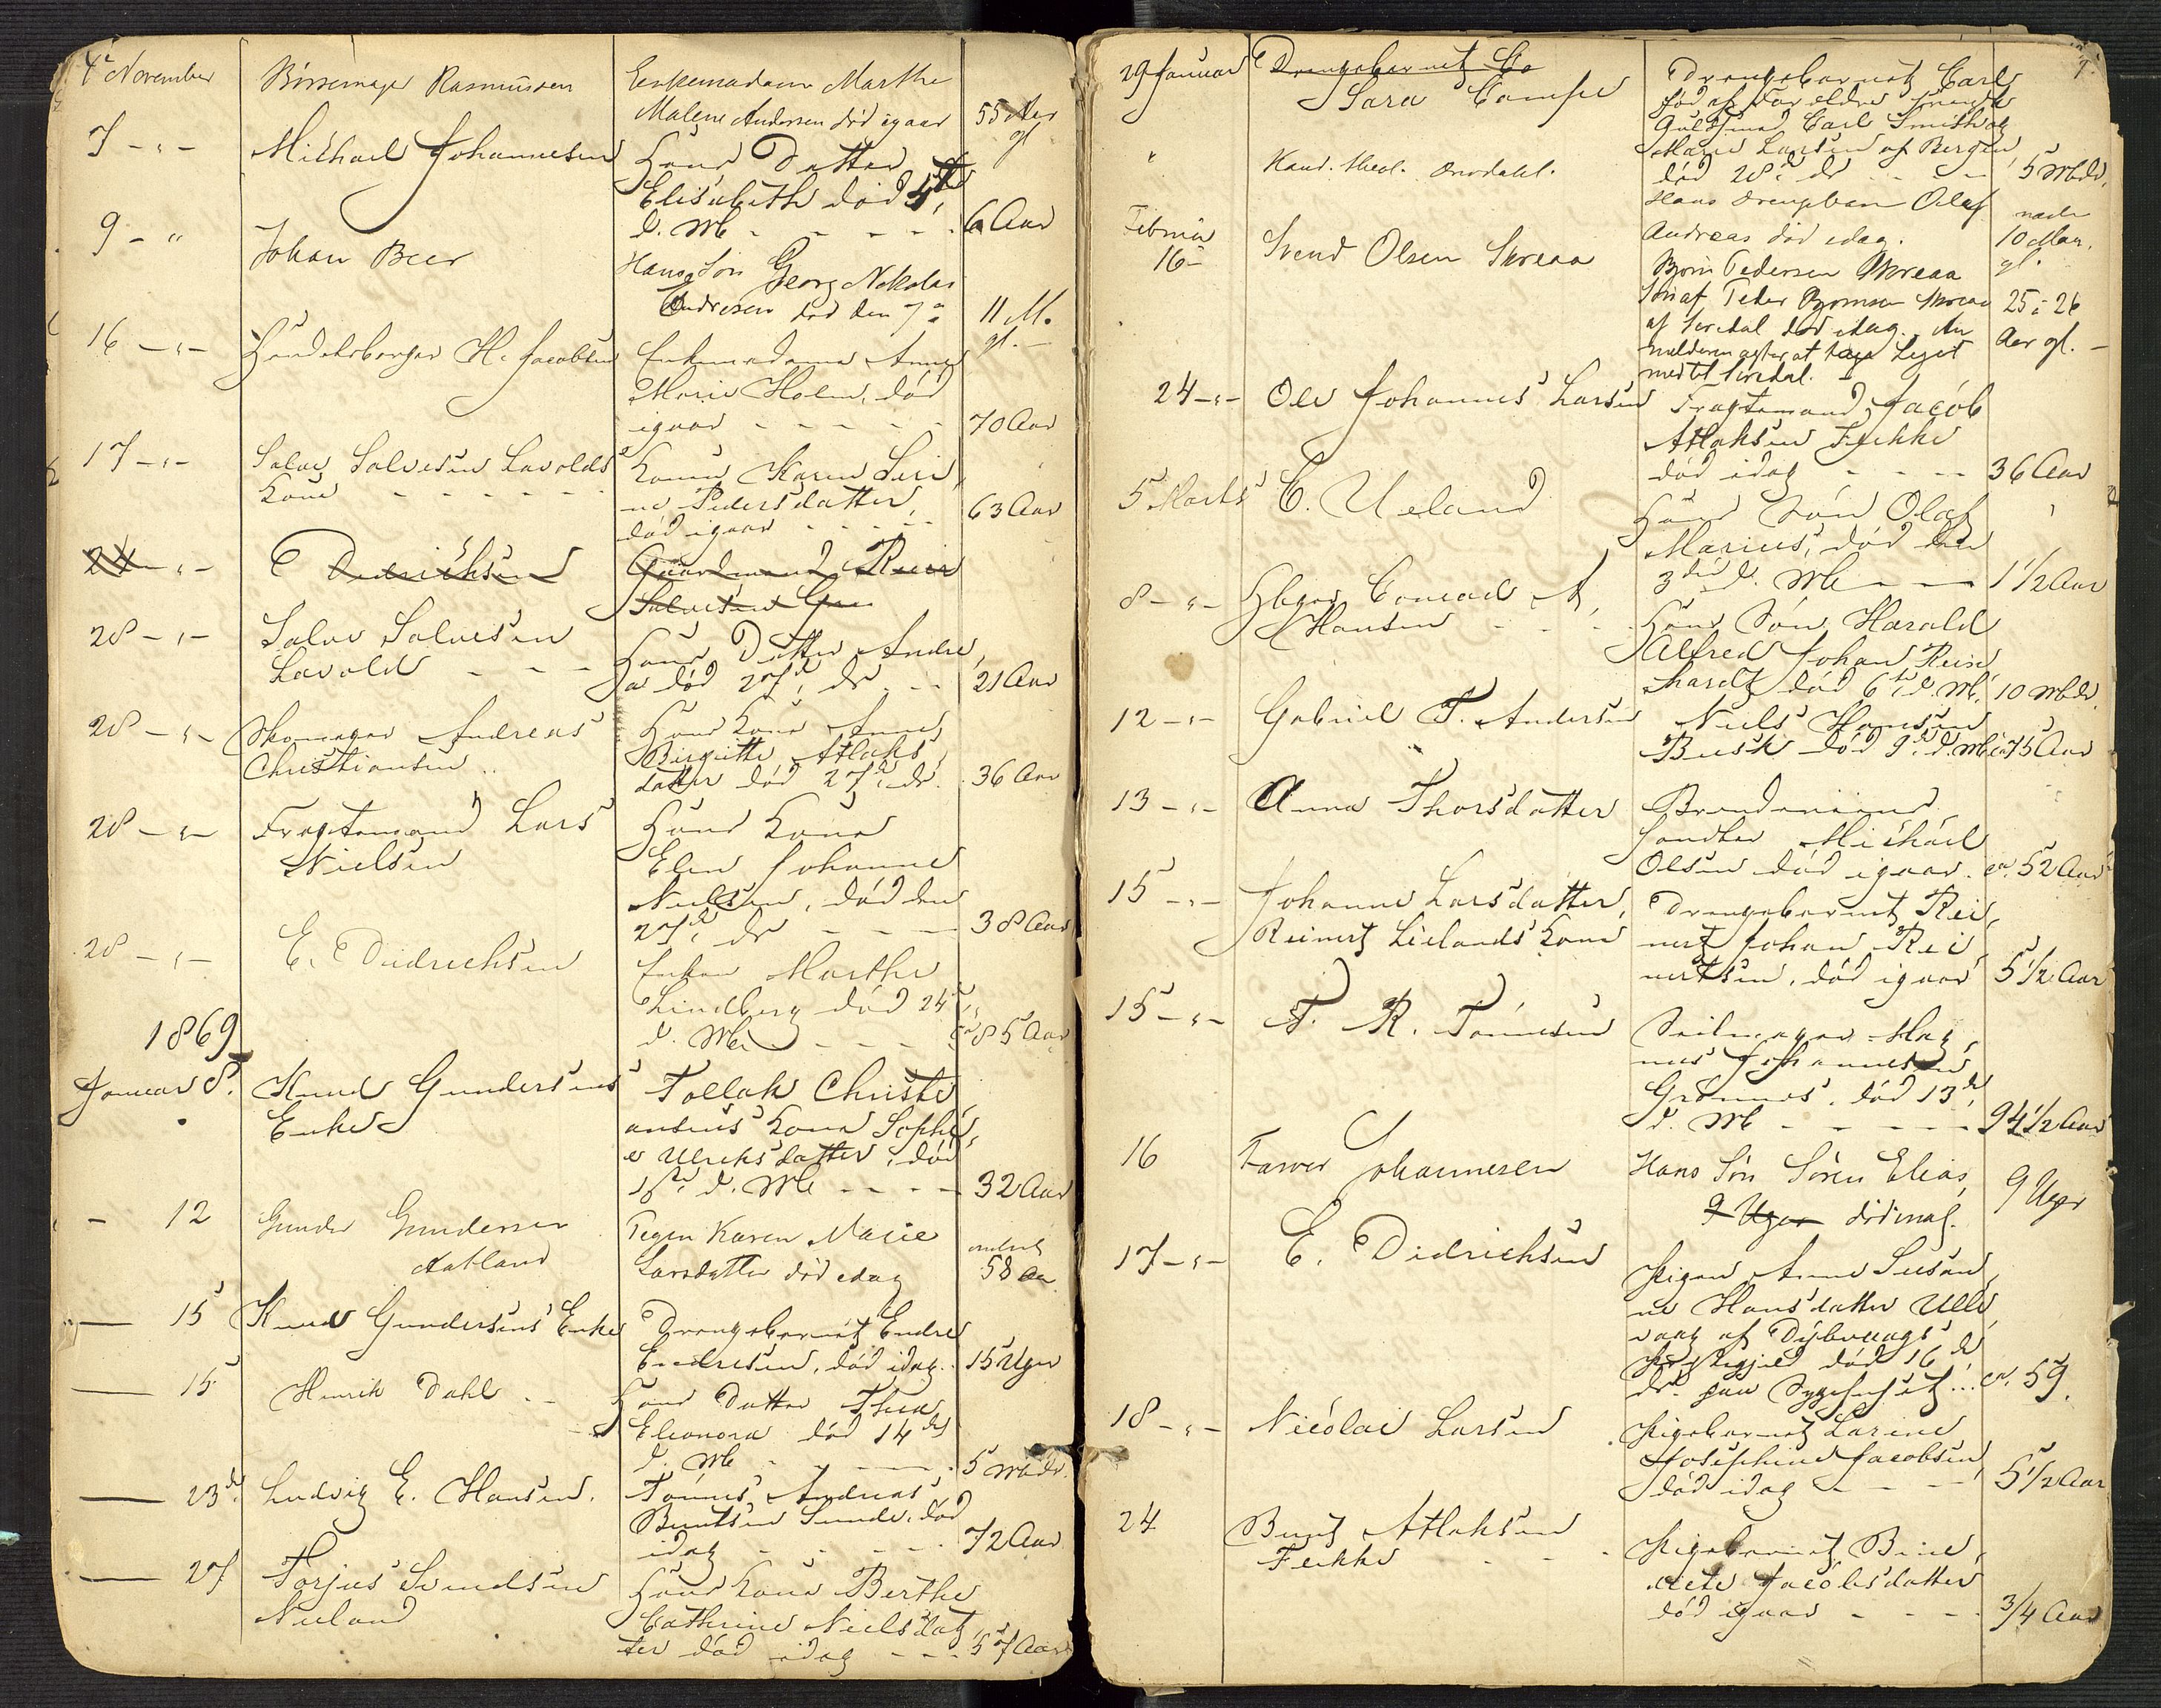 4de November
Børsemager Rasmussen
Enkemadam Marthe
Malene Andersen død igaar
55 Aar
gl
7 - " -
Michael Johannesen
Hans Datter
Elisabeth død
d. M. - - - -
6 Aar
9 - "
Johan Beer
Hans Søn Georg Nikolai
Andresen død den 7de
11 M.
gl. -
16 - " -
Handelsborger H. Jacobsen
Enkemadame Anne
Marie Holm, død
igaar - - - - -
70 Aar
17 - " -
Salve Salvesen Lavolds
Kone - - - - - -
Konen Karen Seri,
ne Pedersdatter,
død igaar - - - - -
63 Aar
24 - " -
E Didrichsen
Gaardmand Reier
Salvesen
28 - " -
Salve Salvesen
Lavold - - -
Hans Datter Andre,
a død 27de ds - -
21 Aar
28 - " -
Skomager Andreas
Christiansen ..
Hans Kone Anne
Birgitte Atlaks,
datter død 27de ds.
36 Aar
28 - " -
Fragtemand Lars
Nielsen
Hans Kone
Elen Johanne
Nielsen, død den
27de ds - - -
38 Aar
28 - " -
E. Didrichsen
Enken Marthe
Lindberg død 24de
d. M. - - - -
ca 85 Aar
1869
Januar 8.
Knud Gundersens
Enke
Tollak Christi
ansens Kone Sophi,
e Ulriksdatter, død
d. M. - - - -
32 Aar
- 12
Gunder Gundersen
Aatland
Pigen Karen Marie
Larsdatter død idag
omtrent
58 Aar
— 15
Knud Gundersens Enke
Drengebarnet Endre
Endresen, død idag.
15 Uger
— 15
Henrik Dahl - -
Hans Datter Thea
Eleonora død 14de
d. M. - - - -
5 Mdr.
— 23de
Ludvig E. Hansen.
Tønnes Andreas
Berntsen Sunde, død
idag - - - - -
72 Aar
— 27
Torjus Svendsen
Nuland
Hans Kone Berthe
Cathrine Nielsdat,
ter død idag - - -
57 Aar
29 Januar
Drengebarnet Ca
Sara
Drengebarnet Carl
født af Forældre
Guldsmed Carl Smith og
Marie Larsen af Bergen
død 28de ds - - -
5 Mdr.
"
Kand. theol. Omdahl.
Hans Drengebarn Olaf
Andreas død idag.
10 Mdr.
gl.
Februar
16 -
Svend Olsen Skreaa
Bjørn Pedersen Skreaa
Søn af Peder Bjørnsen Skreaa
af Siredal død idag. An
melderen agter at tage Liget
med til Siredal.
25 à 26
Aar gl. -
24 - " -
Ole Johannes Larsen
Fragtemand Jacob
Atlaksen Fække
død idag - - - -
36 Aar
5 Marts
C. Ueland
Hans Søn Olaf
Marius, død den
3die d. M. - -
1 1/2 Aar
8 - " -
Hbgr. Conrad A,
Hansen - - - -
Hans Søn Harald
Alfred Johan Rein
hardt død 6te d. M.
10 Mdr.
12 - " -
Gabriel T. Andersen
Niels Hansen
Busk død 9de d. M.
ca 75 Aar
13 - " -
Anna Thorsdatter
Brændeviins
handler Michael
Olsen død igaar.
ca. 52 Aar
15 - " -
Johanne Larsdatter,
Reinert Lielands Kone
Drengebarnet Rei,
nert Johan Rei,
nertsen, død igaar
5 1/2 Aar
15 - " -
T. R. Tønnesen
Seilmager Mag,
nus Johannesen
Grønnes, død 13de
d. M. - - - - -
94 1/2 Aar
16
Farver Johannesen
Hans Søn Søren Elias
9 Uger død inat.
9 Uger
17 - " -
E. Didrichsen
Pigen Anne Susan,
ne Hansdatter Ulle,
vaag af Dybvaags
Præstegjeld død 16de
ds. paa Sygehuset...
ca. 59.
18 - " -
Nicolai Larsen
Pigebarnet Larine
Josephine Jacobsen
død idag - - - -
5 1/2 Aar
24
Bernt Atlaksen
Fække - - -
Pigebarnet Bene,
dicte Jacobsdatter
død igaar - - - -
3/4 Aar